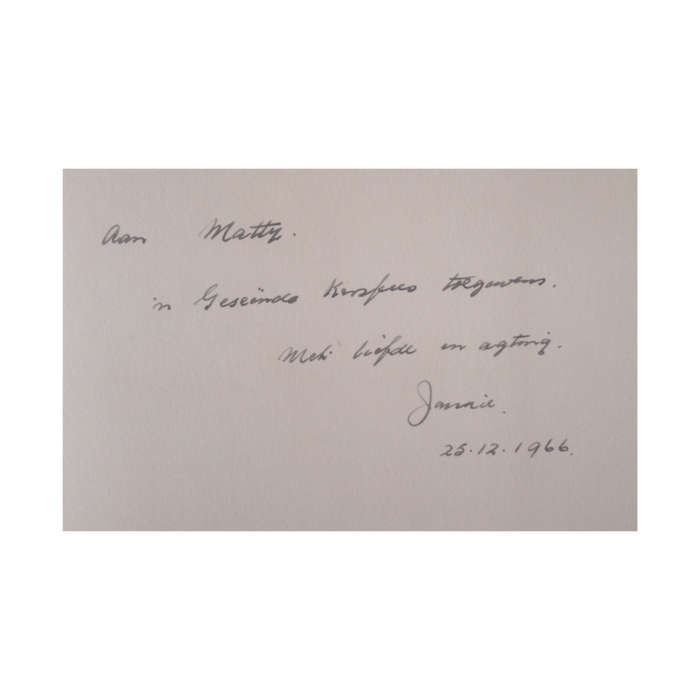 Aan Matty.
'n Geseënde Kersfees toegewens.
Met liefde en agting.
Jannie.
25.12.1966.